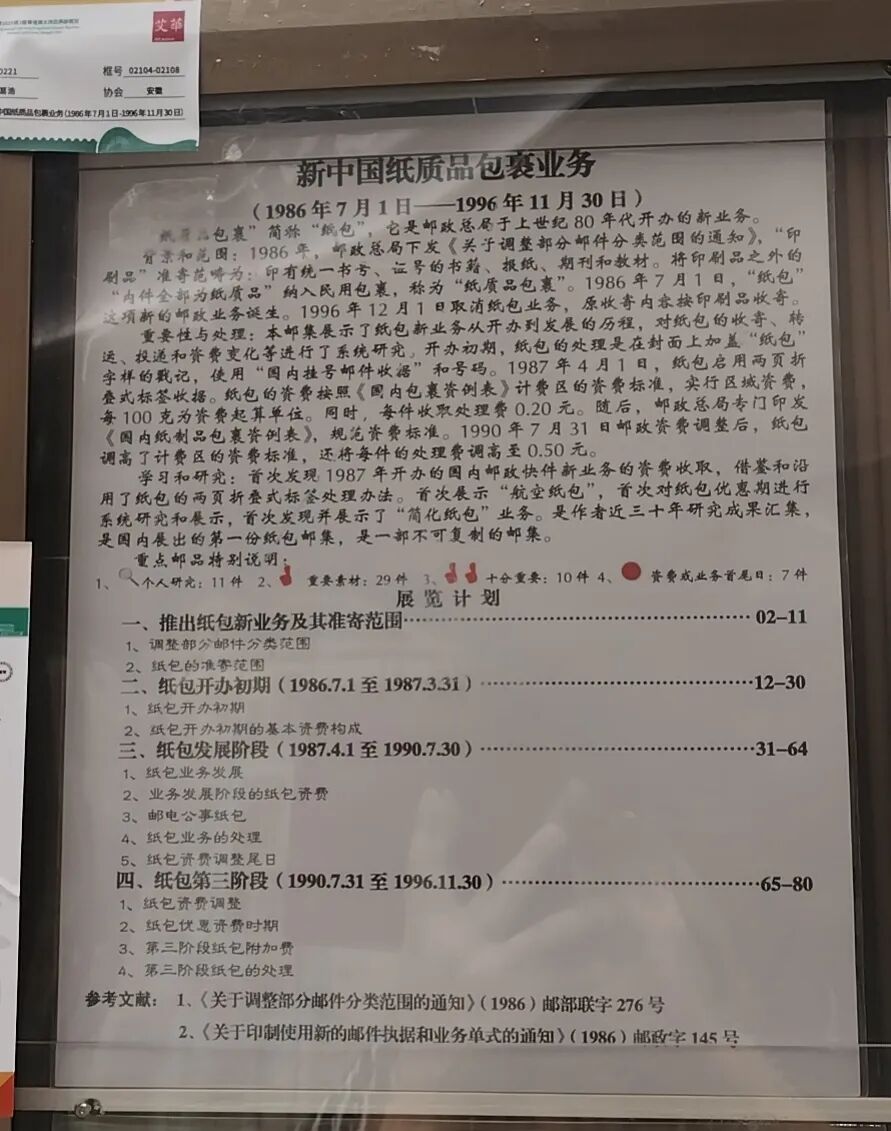 艾華
0221
框号 02104-02108
协会 安徽
中国纸质品包裹业务(1986年7月1日-1996年11月30日)
新中国纸质品包裹业务
(1986年7月1日——1996年11月30日)
包裹”简称“纸包”，它是邮政总局于上世纪80年代开办的新业务。
背景和范围：1986年，邮政总局下发《关于调整部分邮件分类范围的通知》，“印
刷品”准寄范畴为：印有统一书号、证号的书籍、报纸、期刊和教材。将印刷品之外的
“内件全部为纸质品”纳入民用包裹，称为“纸质品包裹”。1986年7月1日，“纸包”
这项新的邮政业务诞生。1996年12月1日取消纸包业务，原收寄内容按印刷品收寄。
重要性与处理：本邮集展示了纸包新业务从开办到发展的历程，对纸包的收寄、转
运、投递和资费变化等进行了系统研究。开办初期，纸包的处理是在封面上加盖“纸包”
字样的戳记，使用“国内挂号邮件收据”和号码。1987年4月1日，纸包启用两页折
叠式标签收据。纸包的资费按照《国内包裹资例表》计费区的资费标准，实行区域资费，
每100克为资费起算单位。同时，每件收取处理费0.20元。随后，邮政总局专门印发
《国内纸制品包裹资例表》，规范资费标准。1990年7月31日邮政资费调整后，纸包
调高了计费区的资费标准，还将每件的处理费调高至0.50元。
学习和研究：首次发现1987年开办的国内邮政快件新业务的资费收取，借鉴和沿
用了纸包的两页折叠式标签处理办法。首次展示“航空纸包”，首次对纸包优惠期进行
系统研究和展示，首次发现并展示了“简化纸包”业务。是作者近三十年研究成果汇集，
是国内展出的第一份纸包邮集，是一部不可复制的邮集。
重点邮品特别说明：
1、个人研究：11件 2、重要素材：29件 3、十分重要：10件 4、资费或业务首尾日：7件
展览计划
一、推出纸包新业务及其准寄范围……………………02-11
1、调整部分邮件分类范围
2、纸包的准寄范围
二、纸包开办初期（1986.7.1至1987.3.31）……………………12-30
1、纸包开办初期
2、纸包开办初期的基本资费构成
三、纸包发展阶段（1987.4.1至1990.7.30）……………………31-64
1、纸包业务发展
2、业务发展阶段的纸包资费
3、邮电公事纸包
4、纸包业务的处理
5、纸包资费调整尾日
四、纸包第三阶段（1990.7.31至1996.11.30）……………………65-80
1、纸包资费调整
2、纸包优惠资费时期
3、第三阶段纸包附加费
4、第三阶段纸包的处理
参考文献：1、《关于调整部分邮件分类范围的通知》（1986）邮部联字276号
2、《关于印制使用新的邮件执据和业务单式的通知》（1986）邮政字145号